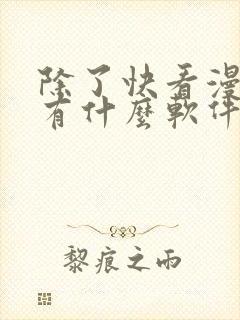 除了快看漫
有什麼軟件
黎痕之雨